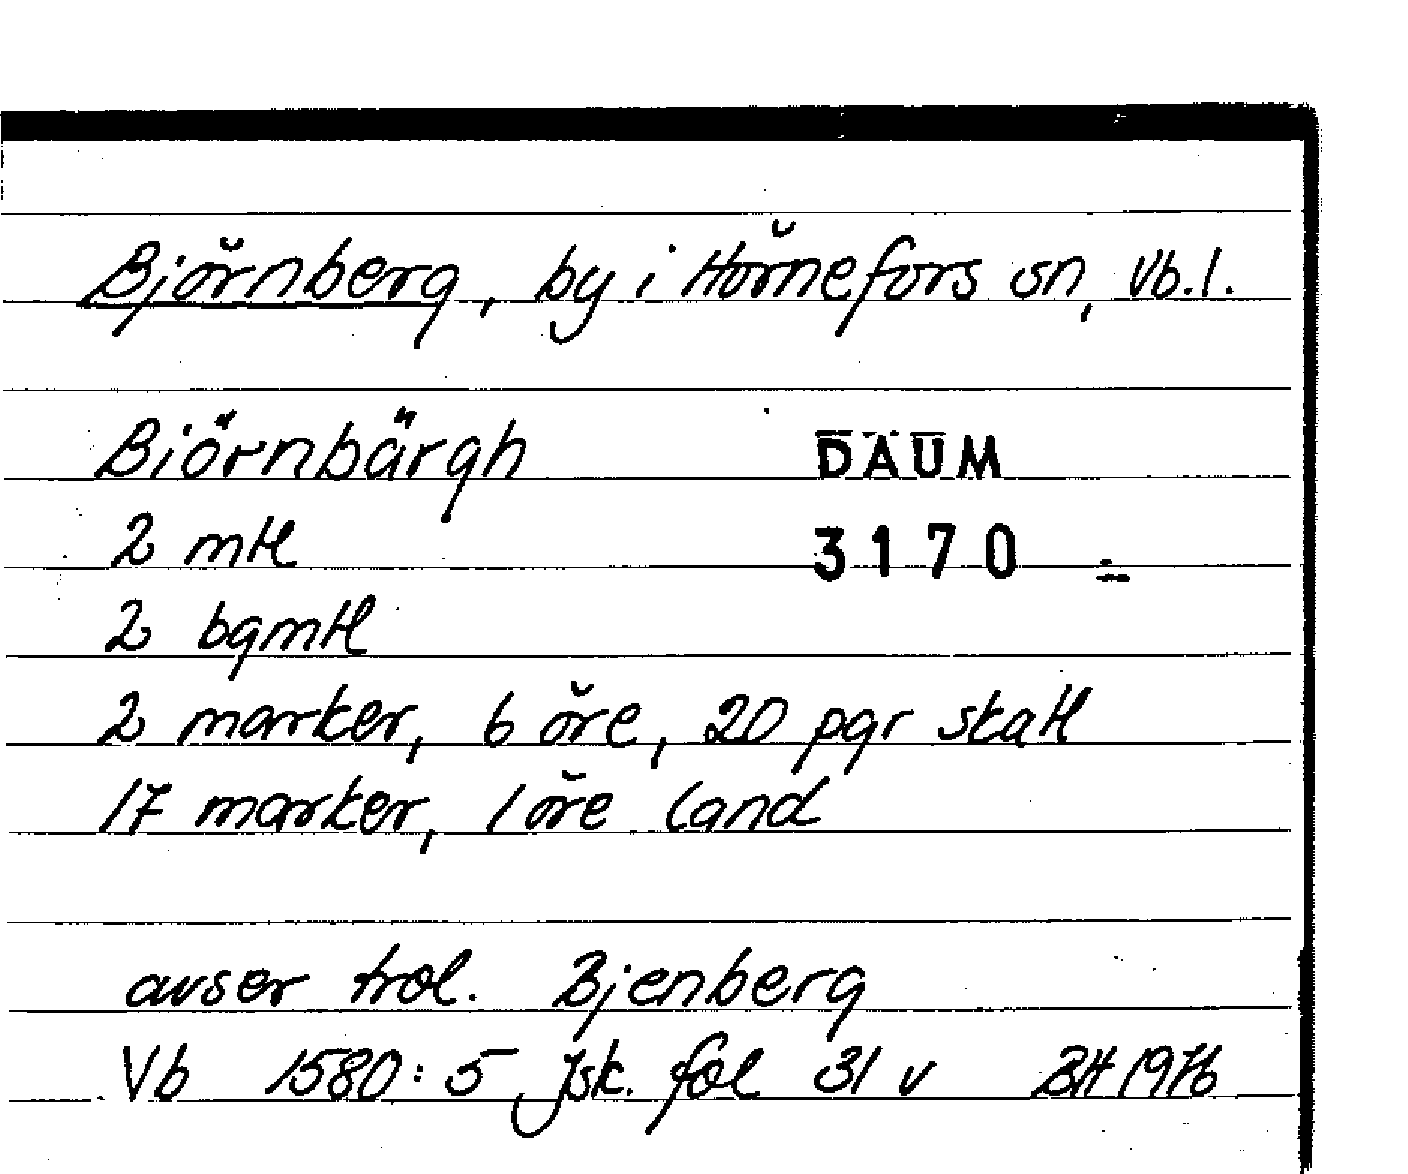 Björnberg, by i Hörnefors sn, Vb.l.
Biörnbärgh
DAUM
2 mtl
3170
2 bgmtl
2 marker, 6 öre, 20 pgr skatt
17 marker, 1 öre land
avser trol. Bjenberg
Vb 1580:5 Jsk. fol 31 v BH 1976